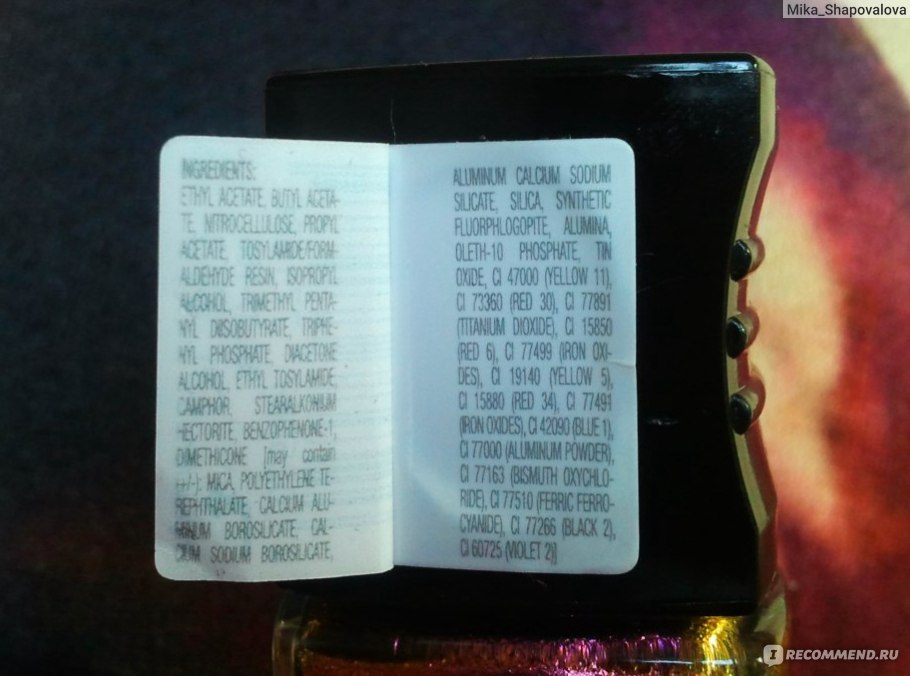 Mika_Shapovalova
INGREDIENTS:
ETHYL ACETATE, BUTYL ACETA-
TE, NITROCELLULOSE, PROPYL
ACETATE, TOSYLAMIDE/FORM-
ALDEHYDE RESIN, ISOPROPYL
ALCOHOL, TRIMETHYL PENTA-
NYL DIISOBUTYRATE, TRIPHE-
NYL PHOSPHATE, DIACETONE
ALCOHOL, ETHYL TOSYLAMIDE,
CAMPHOR, STEARALKONIUM
HECTORITE, BENZOPHENONE-1,
DIMETHICONE [may contain
(+/-): MICA, POLYETHYLENE TE-
REPHTHALATE, CALCIUM ALU-
MINUM BOROSILICATE, CAL-
CIUM SODIUM BOROSILICATE,
ALUMINUM CALCIUM SODIUM
SILICATE, SILICA, SYNTHETIC
FLUORPHLOGOPITE, ALUMINA,
OLETH-10 PHOSPHATE, TIN
OXIDE, CI 47000 (YELLOW 11),
CI 73360 (RED 30), CI 77891
(TITANIUM DIOXIDE), CI 15850
(RED 6), CI 77499 (IRON OXI-
DES), CI 19140 (YELLOW 5),
CI 15880 (RED 34), CI 77491
(IRON OXIDES), CI 42090 (BLUE 1),
CI 77000 (ALUMINUM POWDER),
CI 77163 (BISMUTH OXYCHLO-
RIDE), CI 77510 (FERRIC FERRO-
CYANIDE), CI 77266 (BLACK 2),
CI 60725 (VIOLET 2)]
IRECOMMEND.RU